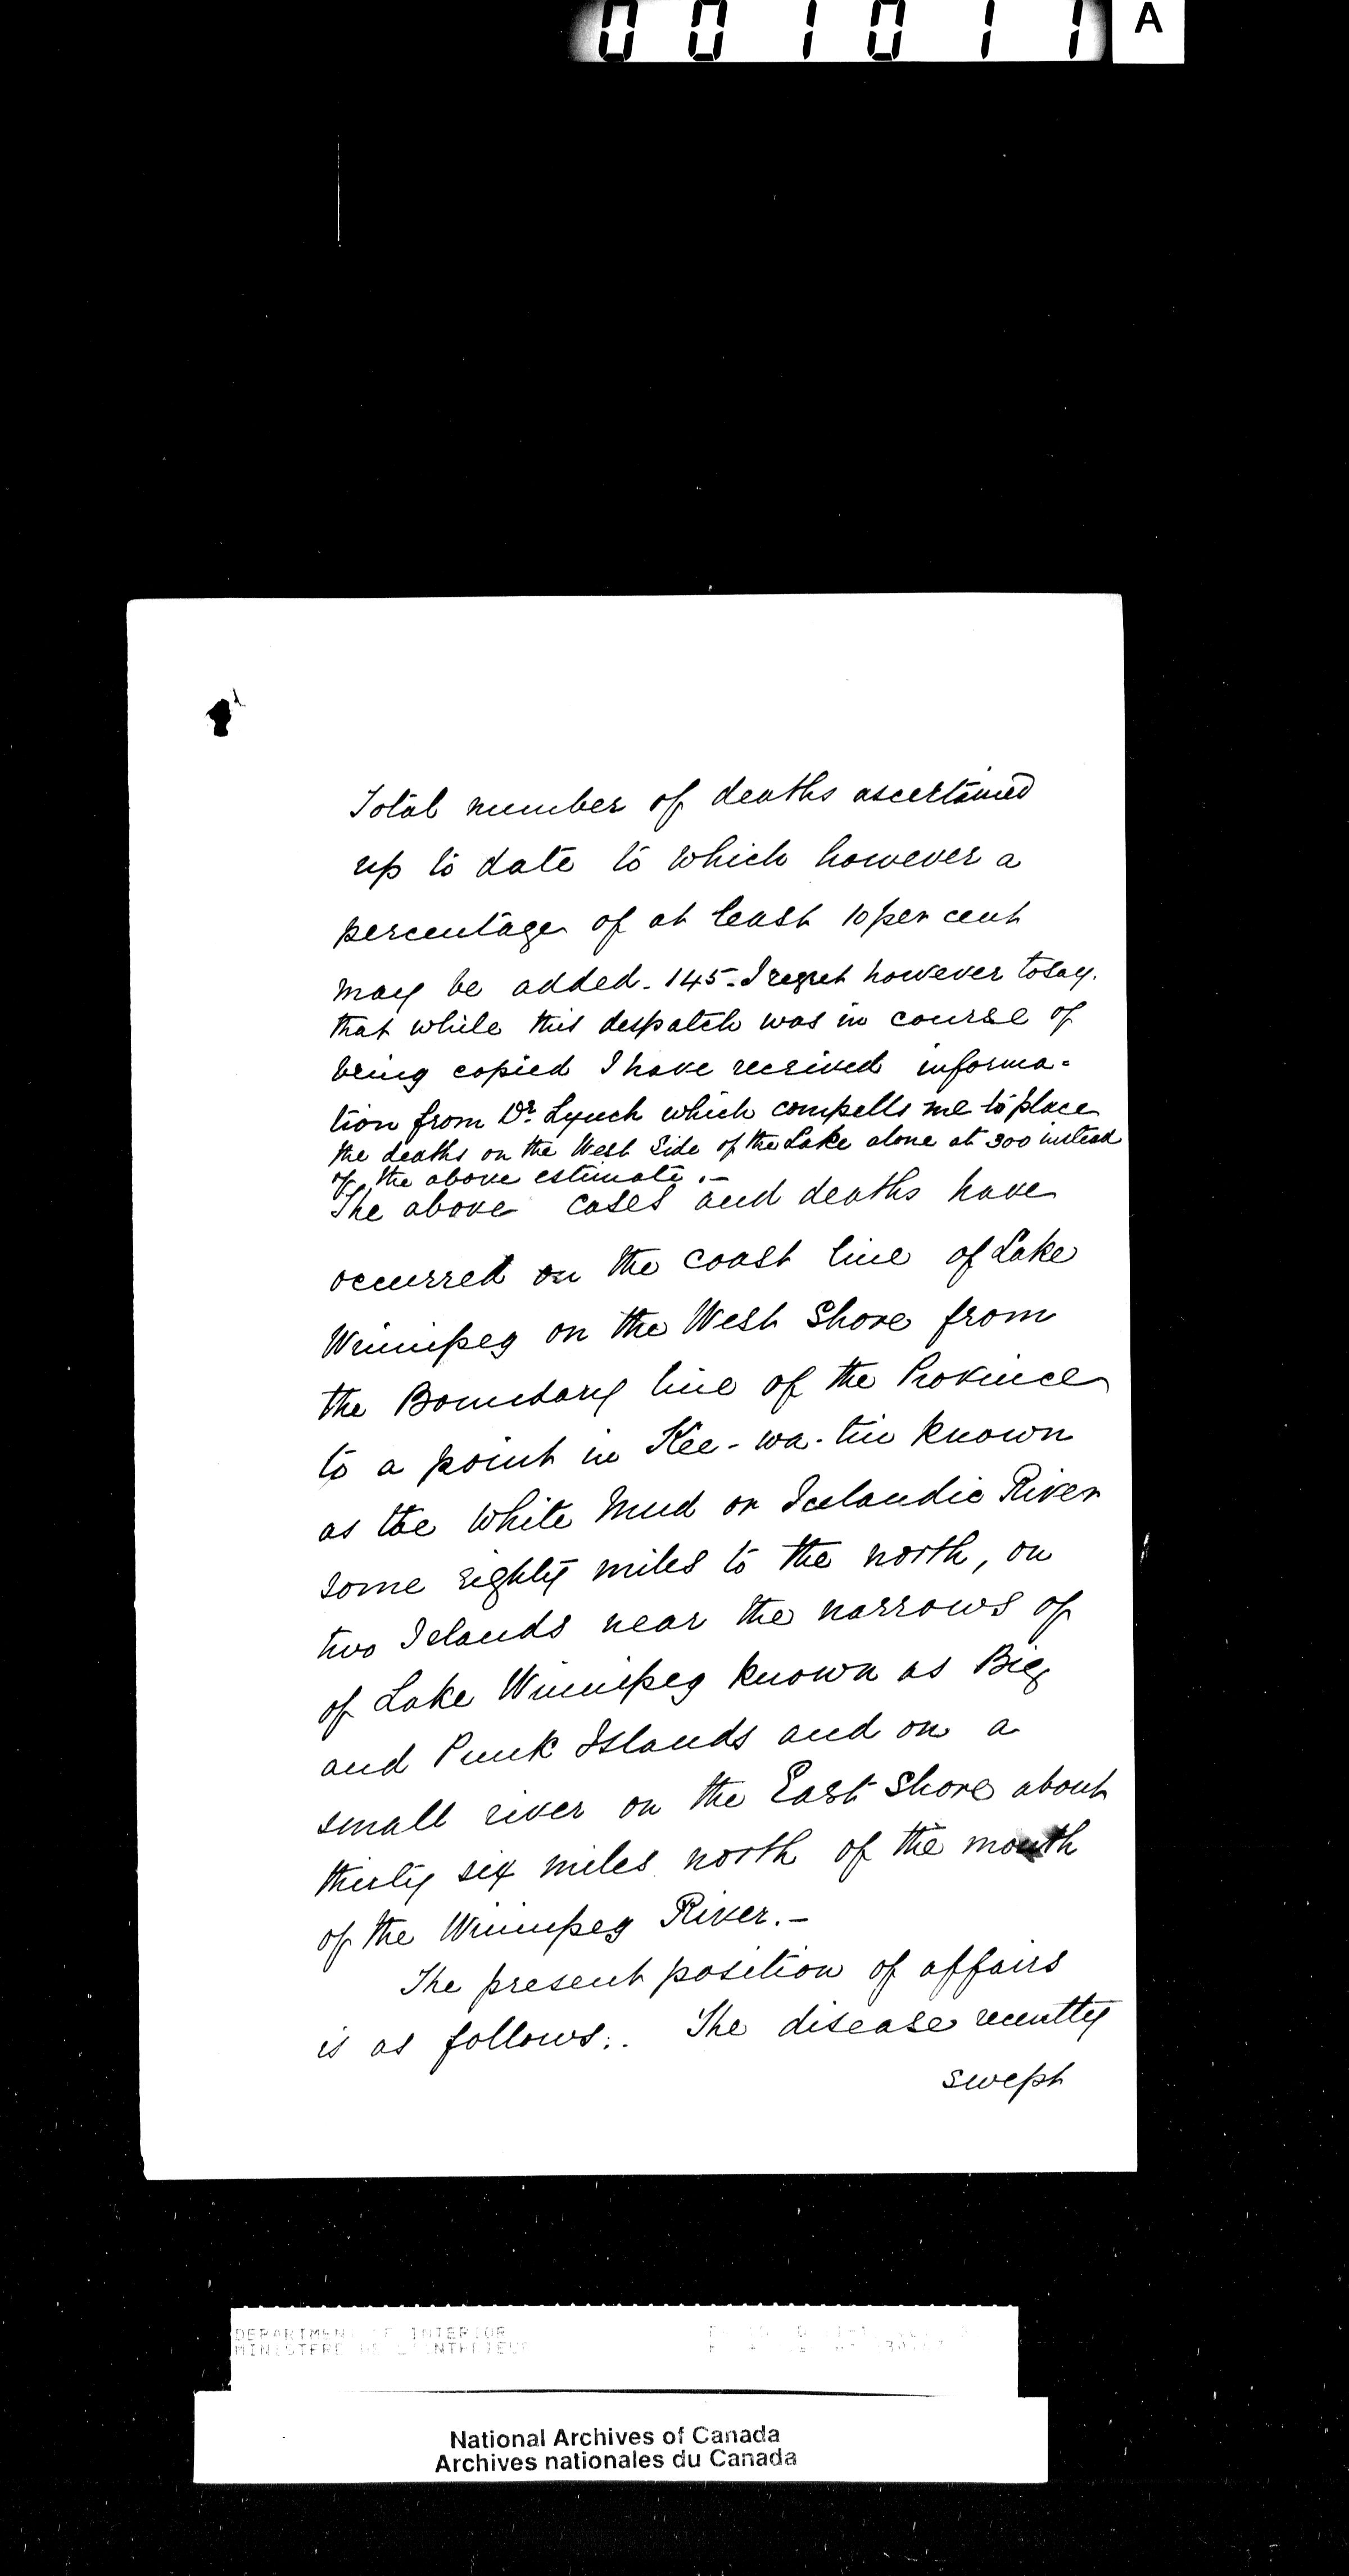 001011 A
Total number of deaths ascertained
up to date to which however a
percentage of at least 10 per cent
may be added. 145. I regret however to say.
that while this despatch was in course of
being copied I have received informa-
tion from Dr. Lynch which compells me to place
the deaths on the West Side of the Lake alone at 300 instead
of the above estimate.-
The above cases and deaths have
occurred on the coast line of Lake
Winnipeg on the West Shore from
the Boundary line of the Province
to a point in Kee-wa-tin known
as the White Mud or Icelandic River
some eighty miles to the north, on
two Islands near the narrows of
of Lake Winnipeg known as Big
and Punk Islands and on a
small river on the East Shore about
thirty six miles north of the mouth
of the Winnipeg River.-
The present position of affairs
is as follows:. The disease recently
swept
DEPARTMENT OF INTERIOR
MINISTERE DE L'INTERIEUR
National Archives of Canada
Archives nationales du Canada